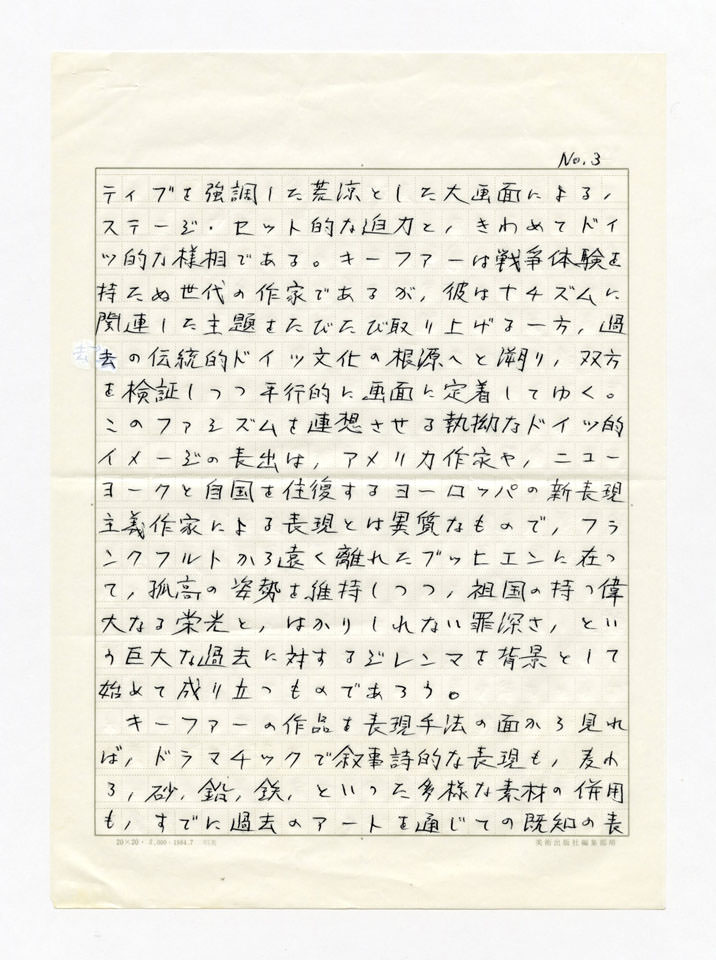 No.3
ティブを強調した荒涼とした大画面による,
ステージ・セット的な迫力と,きわめてドイ
ツ的な様相である。キーファーは戦争体験を
持たぬ世代の作家であるが,彼はナチズムに
関連した主題をたびたび取り上げる一方,過
去の伝統的ドイツ文化の根源へと溯り,双方
を検証しつつ平行的に画面に定着してゆく。
このファシズムを連想させる執拗なドイツ的
イメージの表出は,アメリカ作家や,ニュー
ヨークと自国を往復するヨーロッパの新表現
主義作家による表現とは異質なもので,フラ
ンクフルトから遠く離れたブッヒエンに在っ
て,孤高の姿勢を維持しつつ,祖国の持つ偉
大なる栄光と,はかりしれない罪深さ,とい
う巨大な過去に対するジレンマを背景として
始めて成り立つものであろう。
キーファーの作品を表現手法の面から見れ
ば,ドラマチックで叙事詩的な表現も,麦わ
ら,砂,鉛,鉄,といった多様な素材の併用
も,すでに過去のアートを通じての既知の表
20×20・3,000・1984.7
美術出版社編集部用